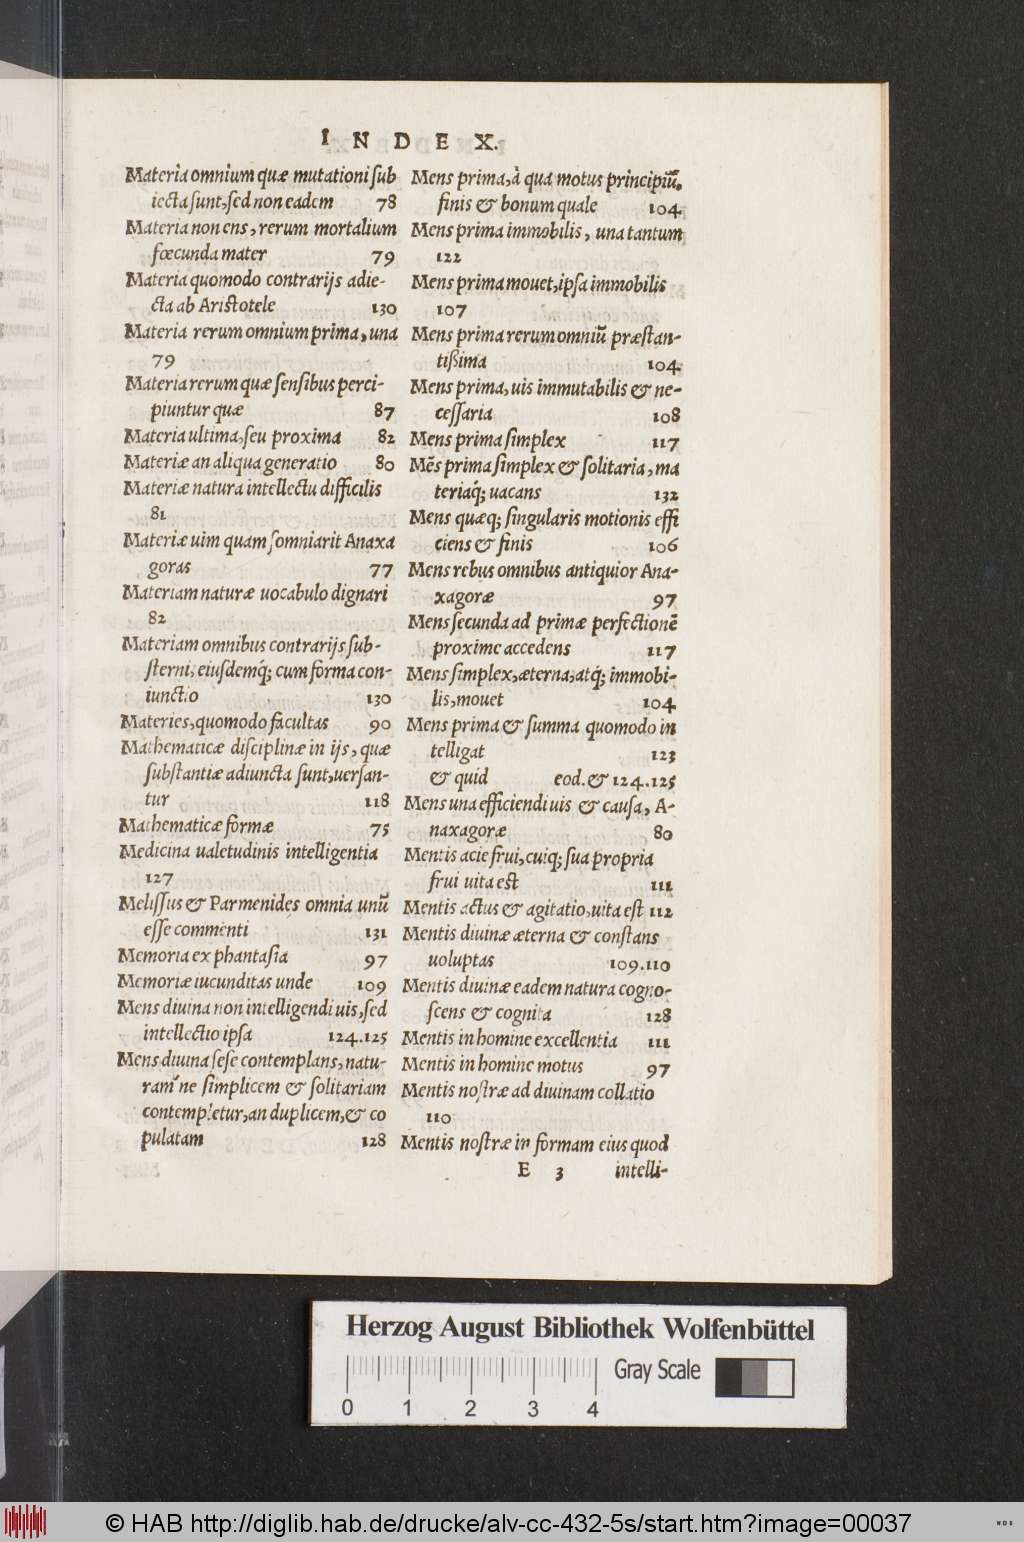 INDEX.
Materia omnium quæ mutationi sub
iecta sunt, sed non eadem 78
Materia non ens, rerum mortalium
fœcunda mater 79
Materia quomodo contrarijs adie-
cta ab Aristotele 130
Materia rerum omnium prima, una
79
Materia rerum quæ sensibus perci-
piuntur quæ 87
Materia ultima, seu proxima 82
Materiæ an aliqua generatio 80
Materiæ natura intellectu difficilis
81
Materiæ uim quam somniarit Anaxa
goras 77
Materiam naturæ uocabulo dignari
82
Materiam omnibus contrarijs sub-
sterni, eiusdemq́; cum forma con-
iunctio 130
Materies, quomodo facultas 90
Mathematicæ disciplinæ in ijs, quæ
substantiæ adiuncta sunt, uersan-
tur 118
Mathematicæ formæ 75
Medicina ualetudinis intelligentia
127
Melissus & Parmenides omnia unũ
esse commenti 131
Memoria ex phantasia 97
Memoriæ iucunditas unde 109
Mens diuina non intelligendi uis, sed
intellectio ipsa 124.125
Mens diuina sese contemplans, natu-
ram´ne simplicem & solitariam
contempletur, an duplicem, & co
pulatam 128
Mens prima, à qua motus principiũ,
finis & bonum quale 104
Mens prima immobilis, una tantum
122
Mens prima mouet, ipsa immobilis
107
Mens prima rerum omniũ præstan-
tißima 104
Mens prima, uis immutabilis & ne-
cessaria 108
Mens prima simplex 117
Mẽs prima simplex & solitaria, ma
teriaq́; uacans 132
Mens quæq; singularis motionis effi
ciens & finis 106
Mens rebus omnibus antiquior Ana-
xagoræ 97
Mens secunda ad primæ perfectionẽ
proxime accedens 117
Mens simplex, æterna, atq́; immobi-
lis, mouet 104
Mens prima & summa quomodo in
telligat 123
& quid eod. & 124.125
Mens una efficiendi uis & causa, A-
naxagoræ 80
Mentis acie frui, cuiq; sua propria
frui uita est 111
Mentis actus & agitatio, uita est 112
Mentis diuinæ æterna & constans
uoluptas 109.110
Mentis diuinæ eadem natura cogno-
scens & cognita 128
Mentis in homine excellentia 111
Mentis in homine motus 97
Mentis nostræ ad diuinam collatio
110
Mentis nostræ in formam eius quod
E 3 intelli-
Herzog August Bibliothek Wolfenbüttel
Gray Scale
0 1 2 3 4
© HAB http://diglib.hab.de/drucke/alv-cc-432-5s/start.htm?image=00037